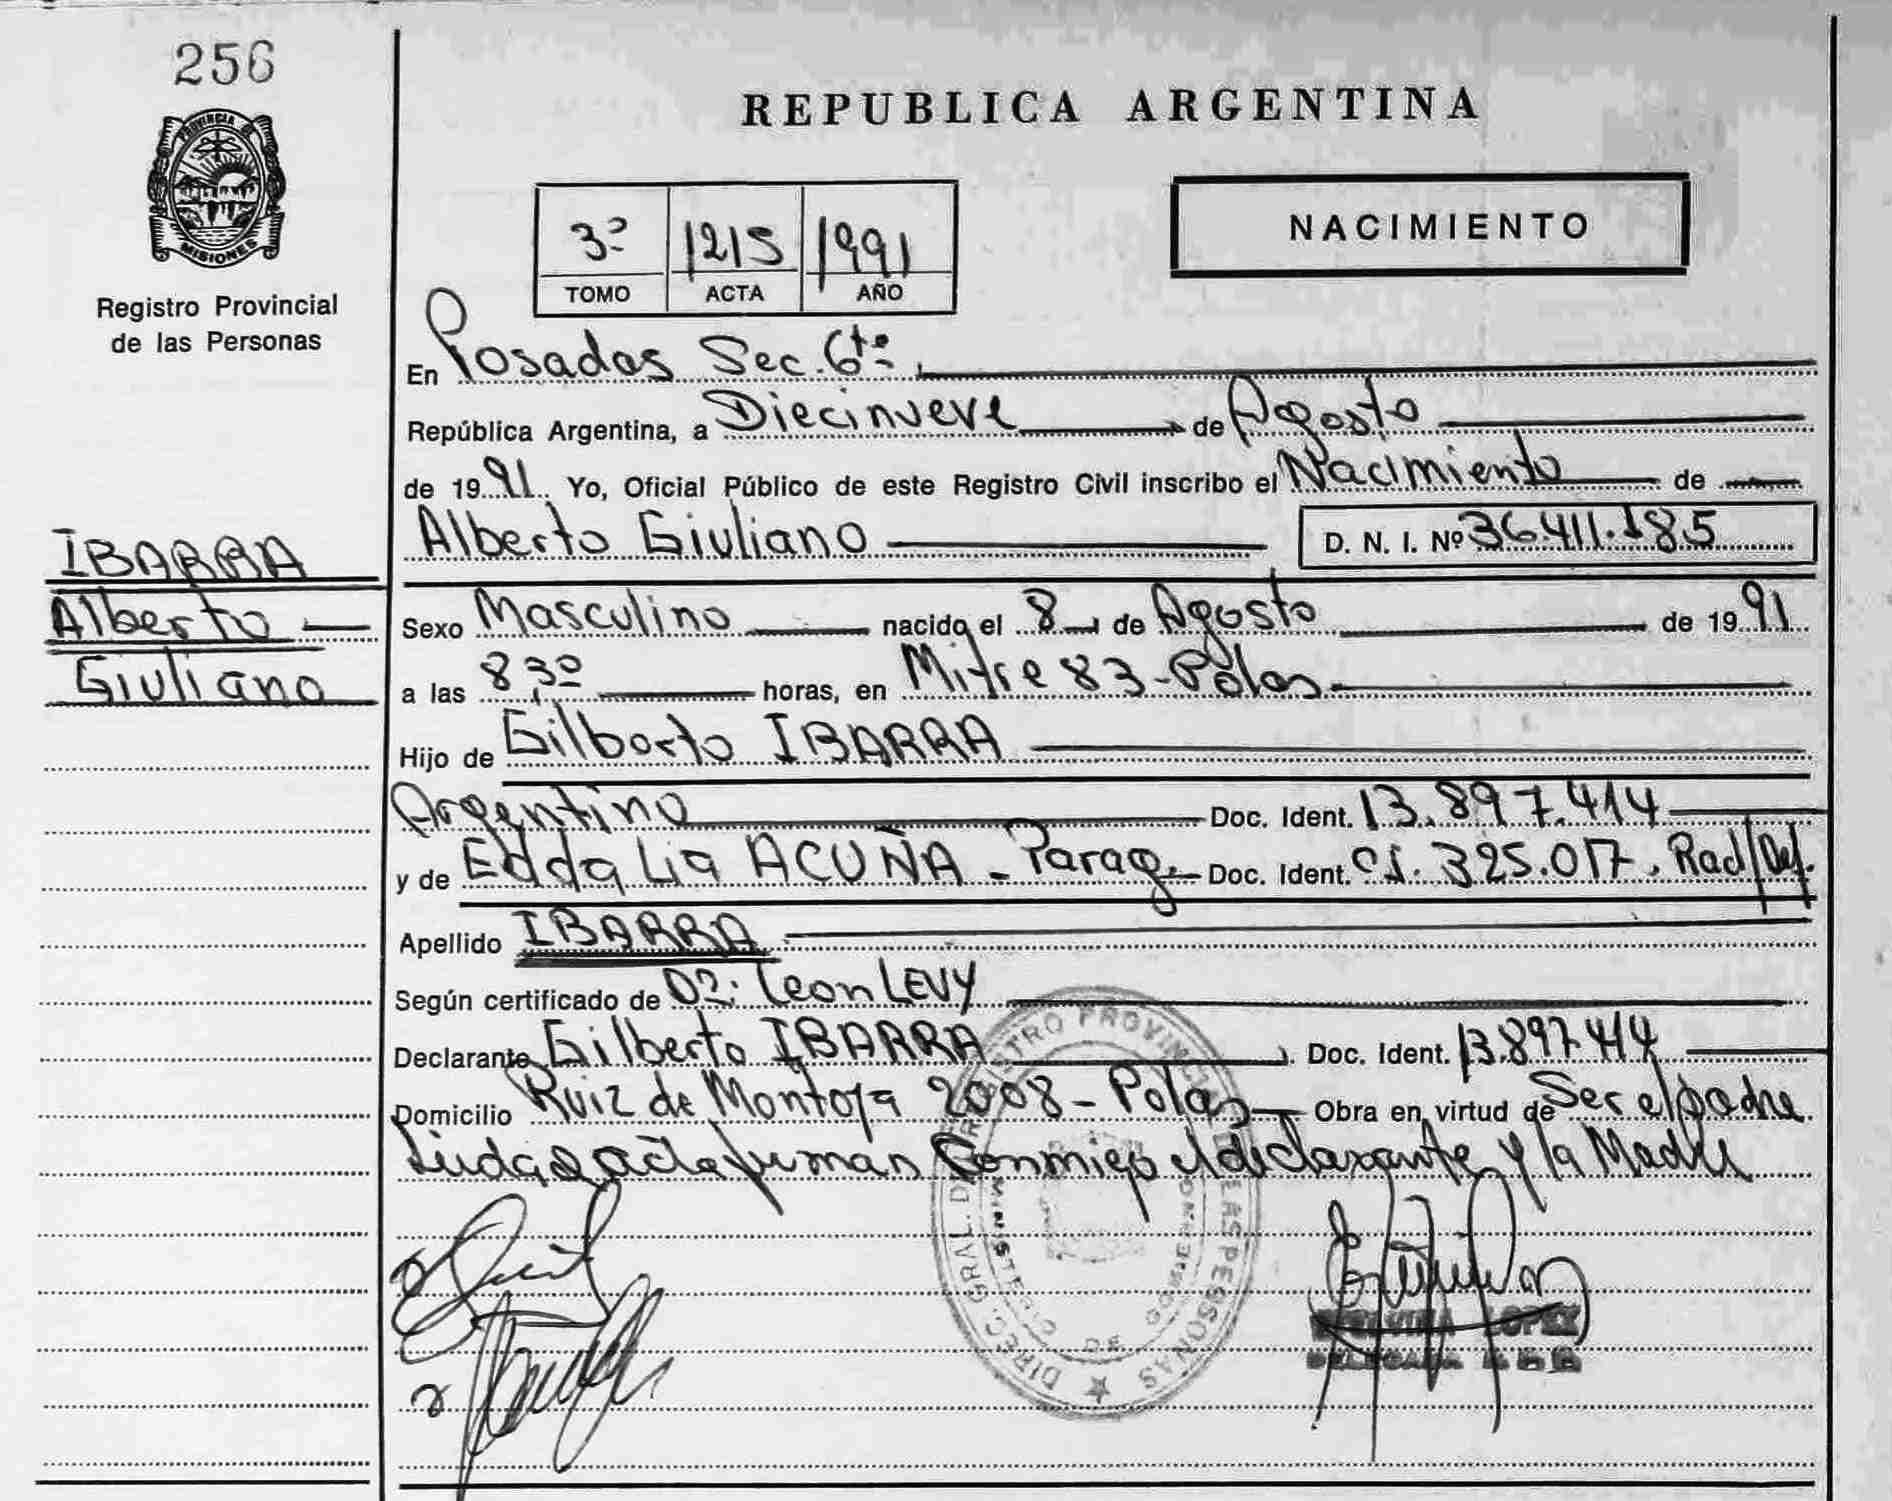 256
PROVINCIA DE
MISIONES
Registro Provincial
de las Personas
IBARRA
Alberto
Giuliano
REPUBLICA ARGENTINA
3º 1215 1991
TOMO ACTA AÑO
NACIMIENTO
En Posadas Sec. 6ta
República Argentina, a Diecinueve de Agosto
de 1991 Yo, Oficial Público de este Registro Civil inscribo el Nacimiento de
Alberto Giuliano D. N. I. Nº 36.411.185
Sexo Masculino nacido el 8 de Agosto de 1991
a las 8,30 horas, en Mitre 83 - Pdas
Hijo de Gilberto IBARRA
Argentino Doc. Ident. 13.897.414
y de Edda Lia ACUÑA - Parag. Doc. Ident. C.I. 325.017. Rad/Def.
Apellido IBARRA
Según certificado de Dr. Leon LEVY
Declarante Gilberto IBARRA Doc. Ident. 13.897.414
Domicilio Ruiz de Montoya 2008 - Pdas Obra en virtud de Ser el padre
Leida el acta firman Conmigo el declarante y la Madre
DIREC. GRAL. DEL REGISTRO PROVINCIAL DE LAS PERSONAS
MINISTERIO DE GOBIERNO
LOPEZ
DELEGADA